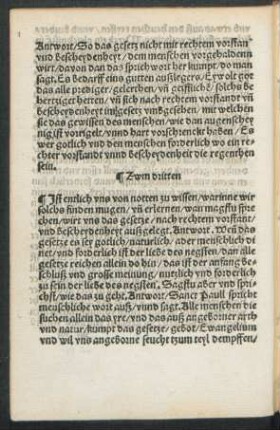 Antwort/ So das gesetz nicht mit rechtem vorstan
vnd bescheydenheyt/ dem menschen vorgehaldenn
wirt/ davon dan das sprichwort her kumpt/ do man
sagt/ Es bedarff eins gutten außlegers/ Ey wolt got
das alle prediger/ gelerthen/ vñ geistliche/ solchs be
hertziget hetten/ vñ sich nach rechtem vorstandt vñ
bescheydenheyt ims gesetz vmdgeshen/ mit welchen
sie das gewissen des menschen/ wie dan augenschey
nig ist vorrigelt/ vnnd hart vorschrenckt haben/ Es
wer gotlich vnd den menschen forderlich wo ein re-
chter vorstandt vnnd bescheydenheit die regenthen
sein.
¶ Zwm dritten
¶ Ist entlich vns von notten zu wissen/ warinne wir
solchs finden mugen/ vñ erlernen/ wan magstu spre
chen/ wirt vns das gesetze/ nach rechtem vorstant/
vnd bescheydenheyt außgelegt. Antwort. Weñ das
gesetze es sey gotlich/ naturlich/ ader menschlich do
net/ vnd forderlich ist der liebe des negsten/ dan alle
gesetze reichen allein do hin/ das ist der anfang be-
schluß vnd grosse meinung/ nutzlich vnd forderlich
zu sein der liebe des negsten. Sagstu aber vnd spri-
chst/ wie das zu gehe. Antwort/ Sanct Paull spricht
menschliche wort auß/ vnnd sagt. Alle menschen die
suchen allein das yre/ vnd das auß angeborner arth
vnd natur/ kumpt das gesetze/ gebot/ Ewangelium
vnd wil vns angeborne seucht tzum teyl dempffen/